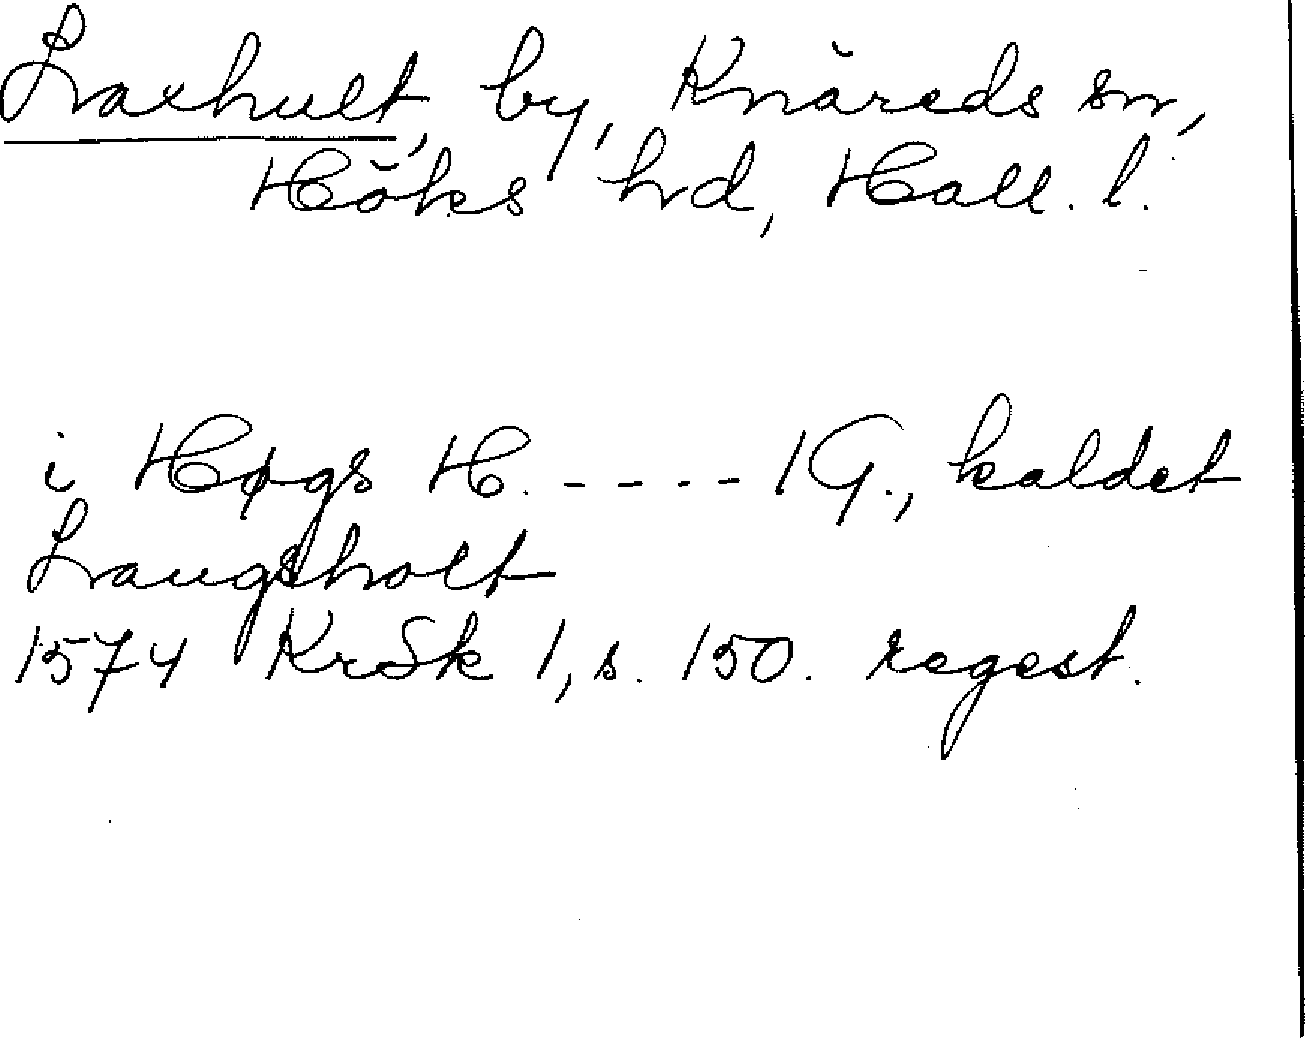 Laxhult, by, Knäreds sn,
Höks hd, Hall. l.
i Høgs H. - - - - 1 G., kaldet
Laugsholt
1574 KrSk 1, s. 150. regest.